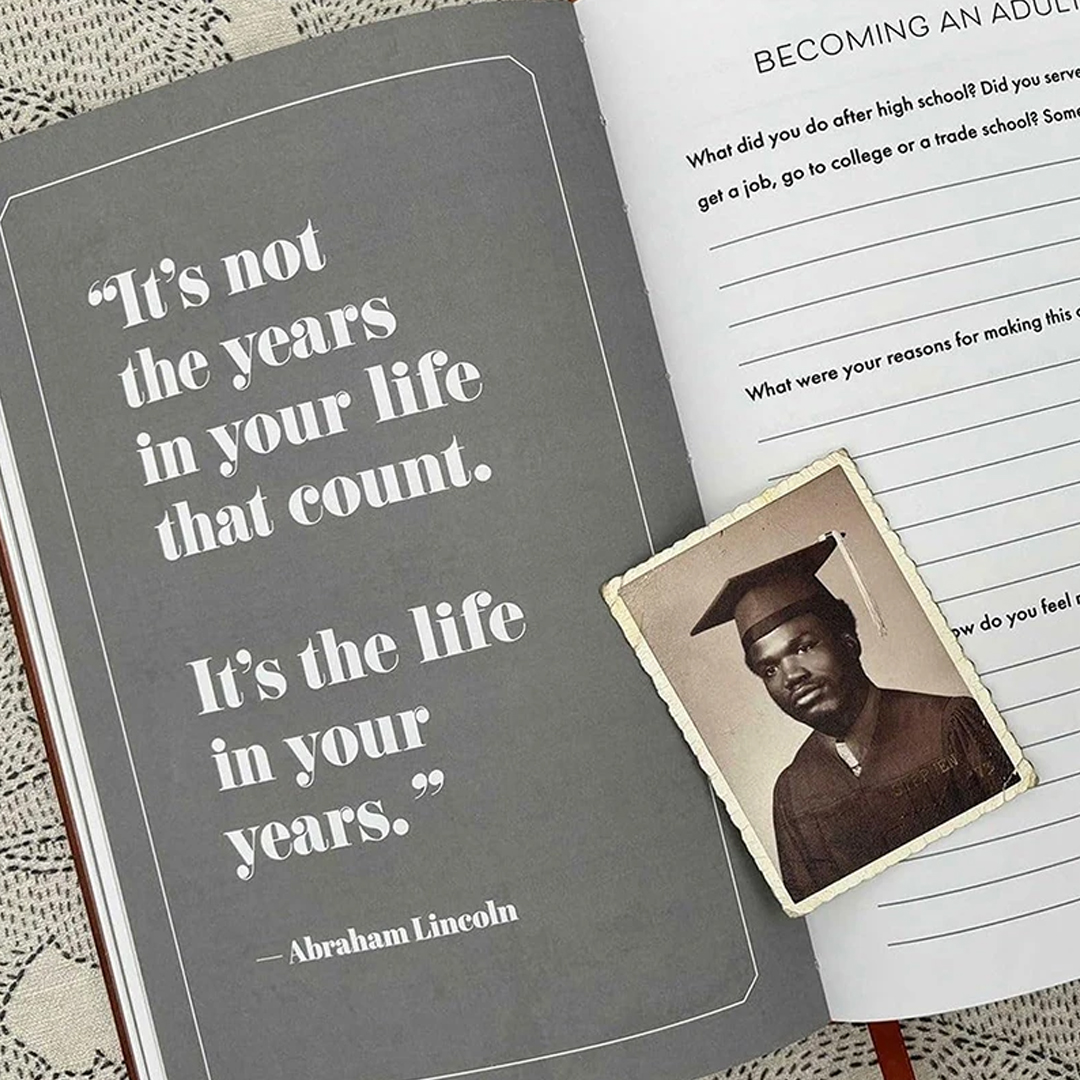 “It’s not
the years
in your life
that count.
It’s the life
in your
years.”
— Abraham Lincoln
BECOMING AN ADULT
What did you do after high school? Did you serve
get a job, go to college or a trade school? Some
What were your reasons for making this
ow do you feel